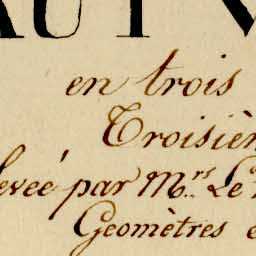 en trois
Troisièm
levée par M.rs Le
Geomètres e